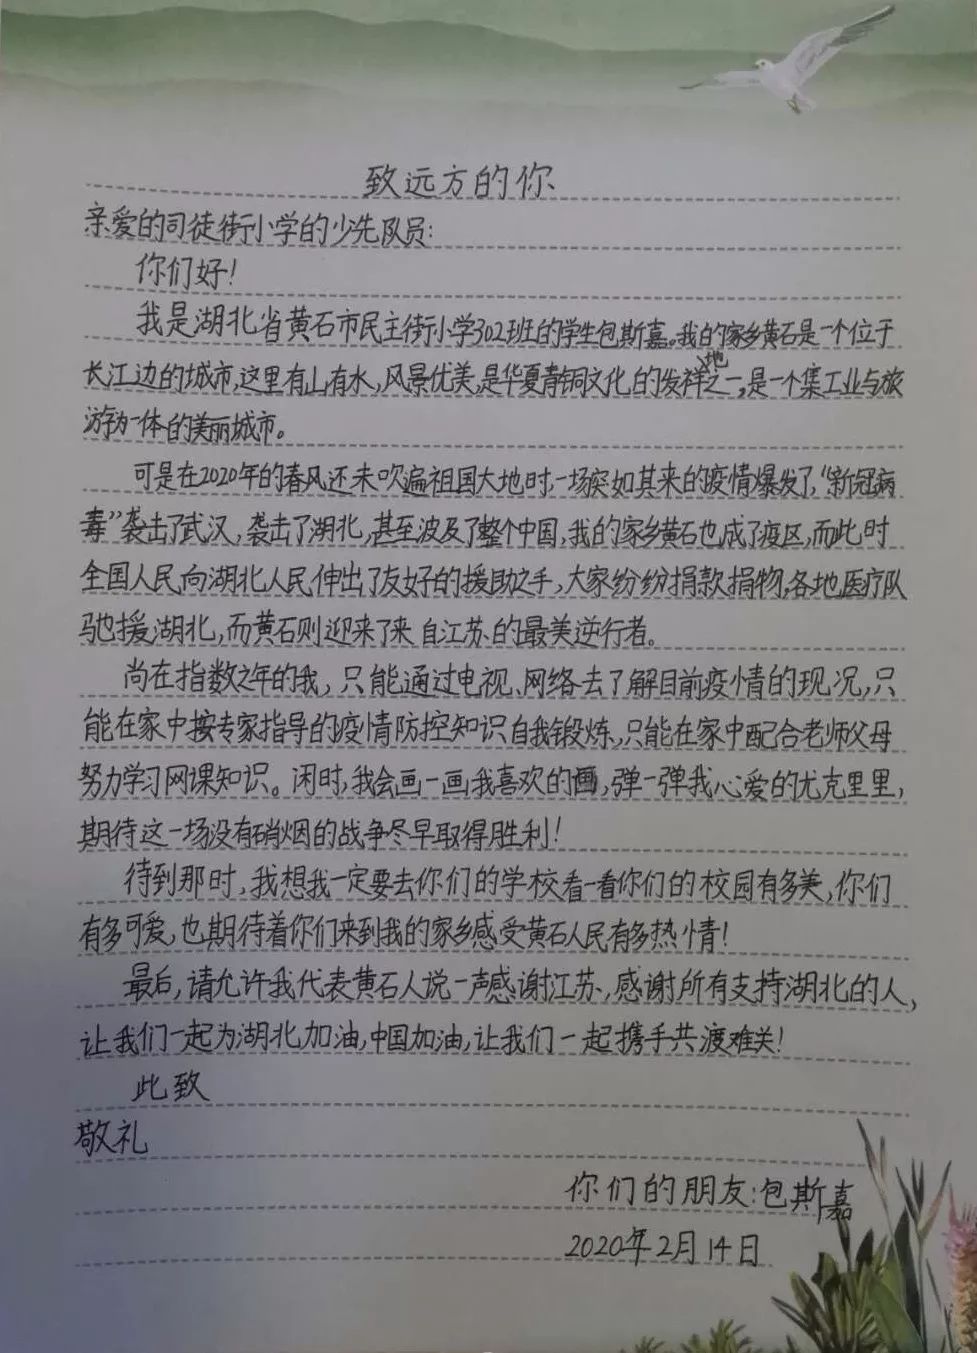 致远方的你
亲爱的司徒街小学的少先队员:
你们好!
我是湖北省黄石市民主街小学302班的学生包斯嘉。我的家乡黄石是一个位于
长江边的城市,这里有山有水,风景优美,是华夏青铜文化的发祥地之一,是一个集工业与旅
游为一体的美丽城市。
可是在2020年的春风还未吹遍祖国大地时,一场突如其来的疫情爆发了,“新冠病
毒”袭击了武汉,袭击了湖北,甚至波及了整个中国,我的家乡黄石也成了疫区,而此时
全国人民向湖北人民伸出了友好的援助之手,大家纷纷捐款捐物,各地医疗队
驰援湖北,而黄石则迎来了来自江苏的最美逆行者。
尚在指数之年的我,只能通过电视、网络去了解目前疫情的现况,只
能在家中按专家指导的疫情防控知识自我锻炼,只能在家中配合老师父母
努力学习网课知识。闲时,我会画一画我喜欢的画,弹一弹我心爱的尤克里里,
期待这一场没有硝烟的战争尽早取得胜利!
待到那时,我想我一定要去你们的学校看一看你们的校园有多美,你们
有多可爱,也期待着你们来到我的家乡感受黄石人民有多热情!
最后,请允许我代表黄石人说一声感谢江苏,感谢所有支持湖北的人,
让我们一起为湖北加油,中国加油,让我们一起携手共渡难关!
此致
敬礼
你们的朋友:包斯嘉
2020年2月14日